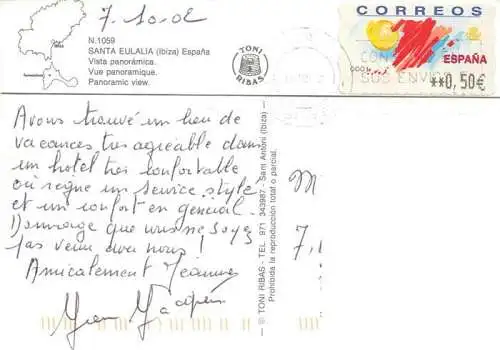 7-10-02
N.1059
SANTA EULALIA (Ibiza) España
Vista panorámica.
Vue panoramique.
Panoramic view.
TONI
RIBAS
CORREOS
ESPAÑA
**0,50€
Avons trouvé un lieu de
vacances très agréable dans
un hotel très confortable
où règne un service stylé
et un confort en général.
Dommage que vous ne soyez
pas venu avec nous !
Amicalement Jeannine
© TONI RIBAS - TEL. 971 343987 - Sant Antoni (Ibiza) -
Prohibida la reproducción total o parcial.
M
7,